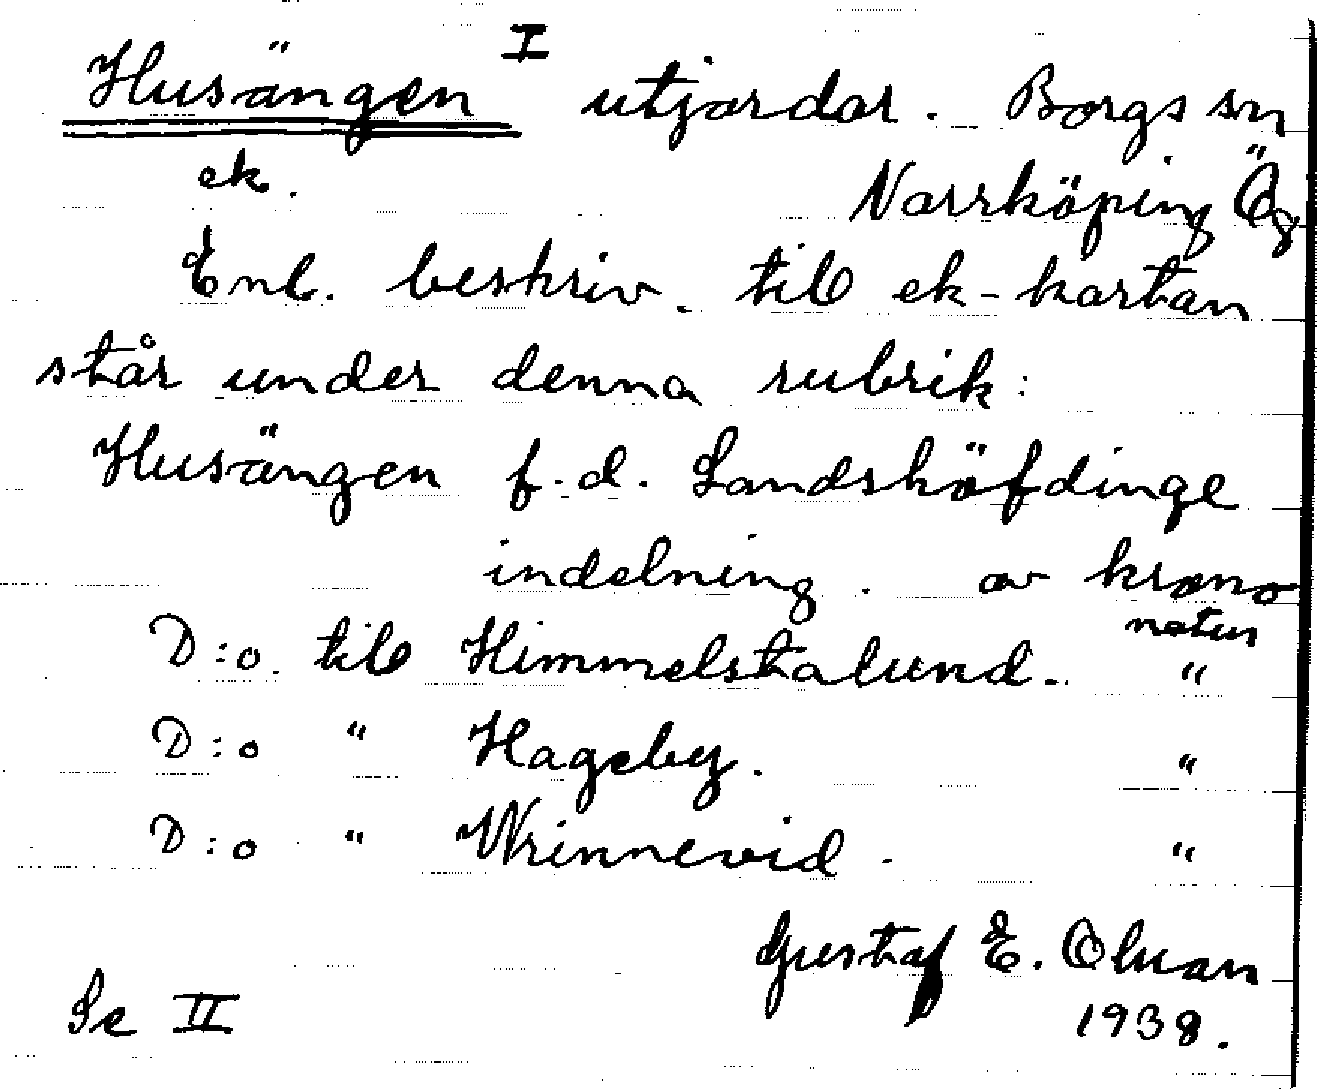 Husängen I utjordar. Borgs sn
ek. Norrköping Ög
Enl. beskriv. till ek-kartan
står under denna rubrik:
Husängen f.d. Landshöfdinge
indelning. av krono
natur
D:o. till Himmelstalund. "
D:o " Hageby. "
D:o " Wrinnevid. "
Gustaf E. Olsson
1938.
Se II